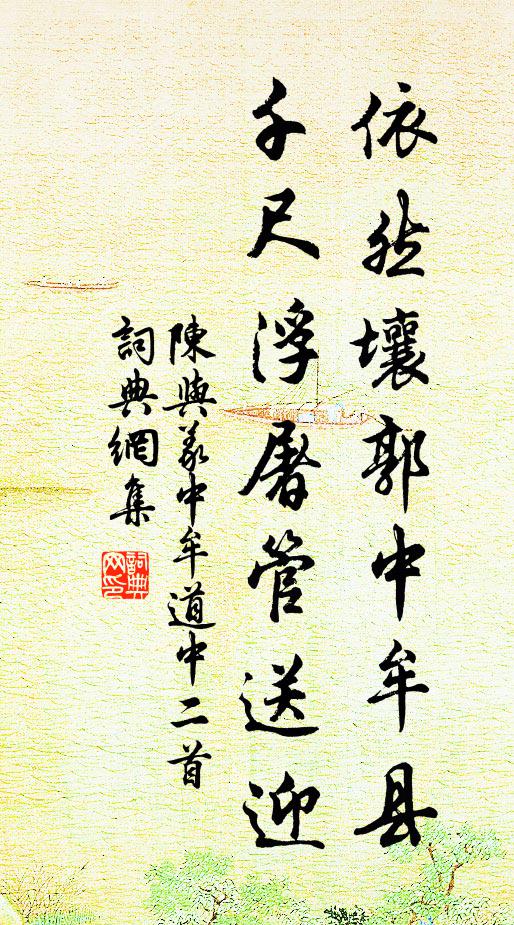 依然壞郭中牟县
千尺浮屠管送迎
陳與義中牟道中二首
詞典網集
詞典网印